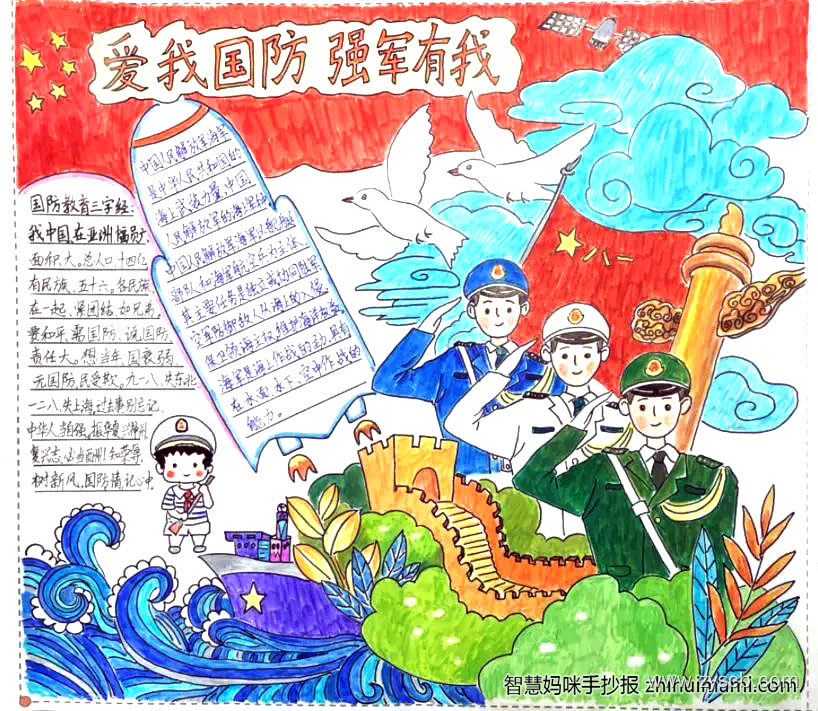 爱我国防 强军有我
中国人民解放军海军
是中华人民共和国的
海上武装力量,中国
人民解放军的海军组
中国人民解放军海军以舰艇
部队和海军航空兵为主体,
其主要任务是独立或协同陆军
空军防御敌人从海上的入侵,
保卫领海主权,维护海洋权益。
海军是海上作战的主力,具有
在水面、水下、空中作战的
能力。
国防教育三字经:
我中国,在亚洲,幅员广,
面积大。总人口,十四亿
有民族,五十六。各民族
在一起,紧团结,如兄弟,
要和平,需国防,说国防
责任大。想当年,国衰弱,
无国防,民受欺。九一八,失东北
一二八,失上海,过去事,别忘记
中华人,当自强,振华夏,兴神州
复兴志,
树新风,国防情,记心中。
八一
智慧妈咪手抄报 zhihuimami.com